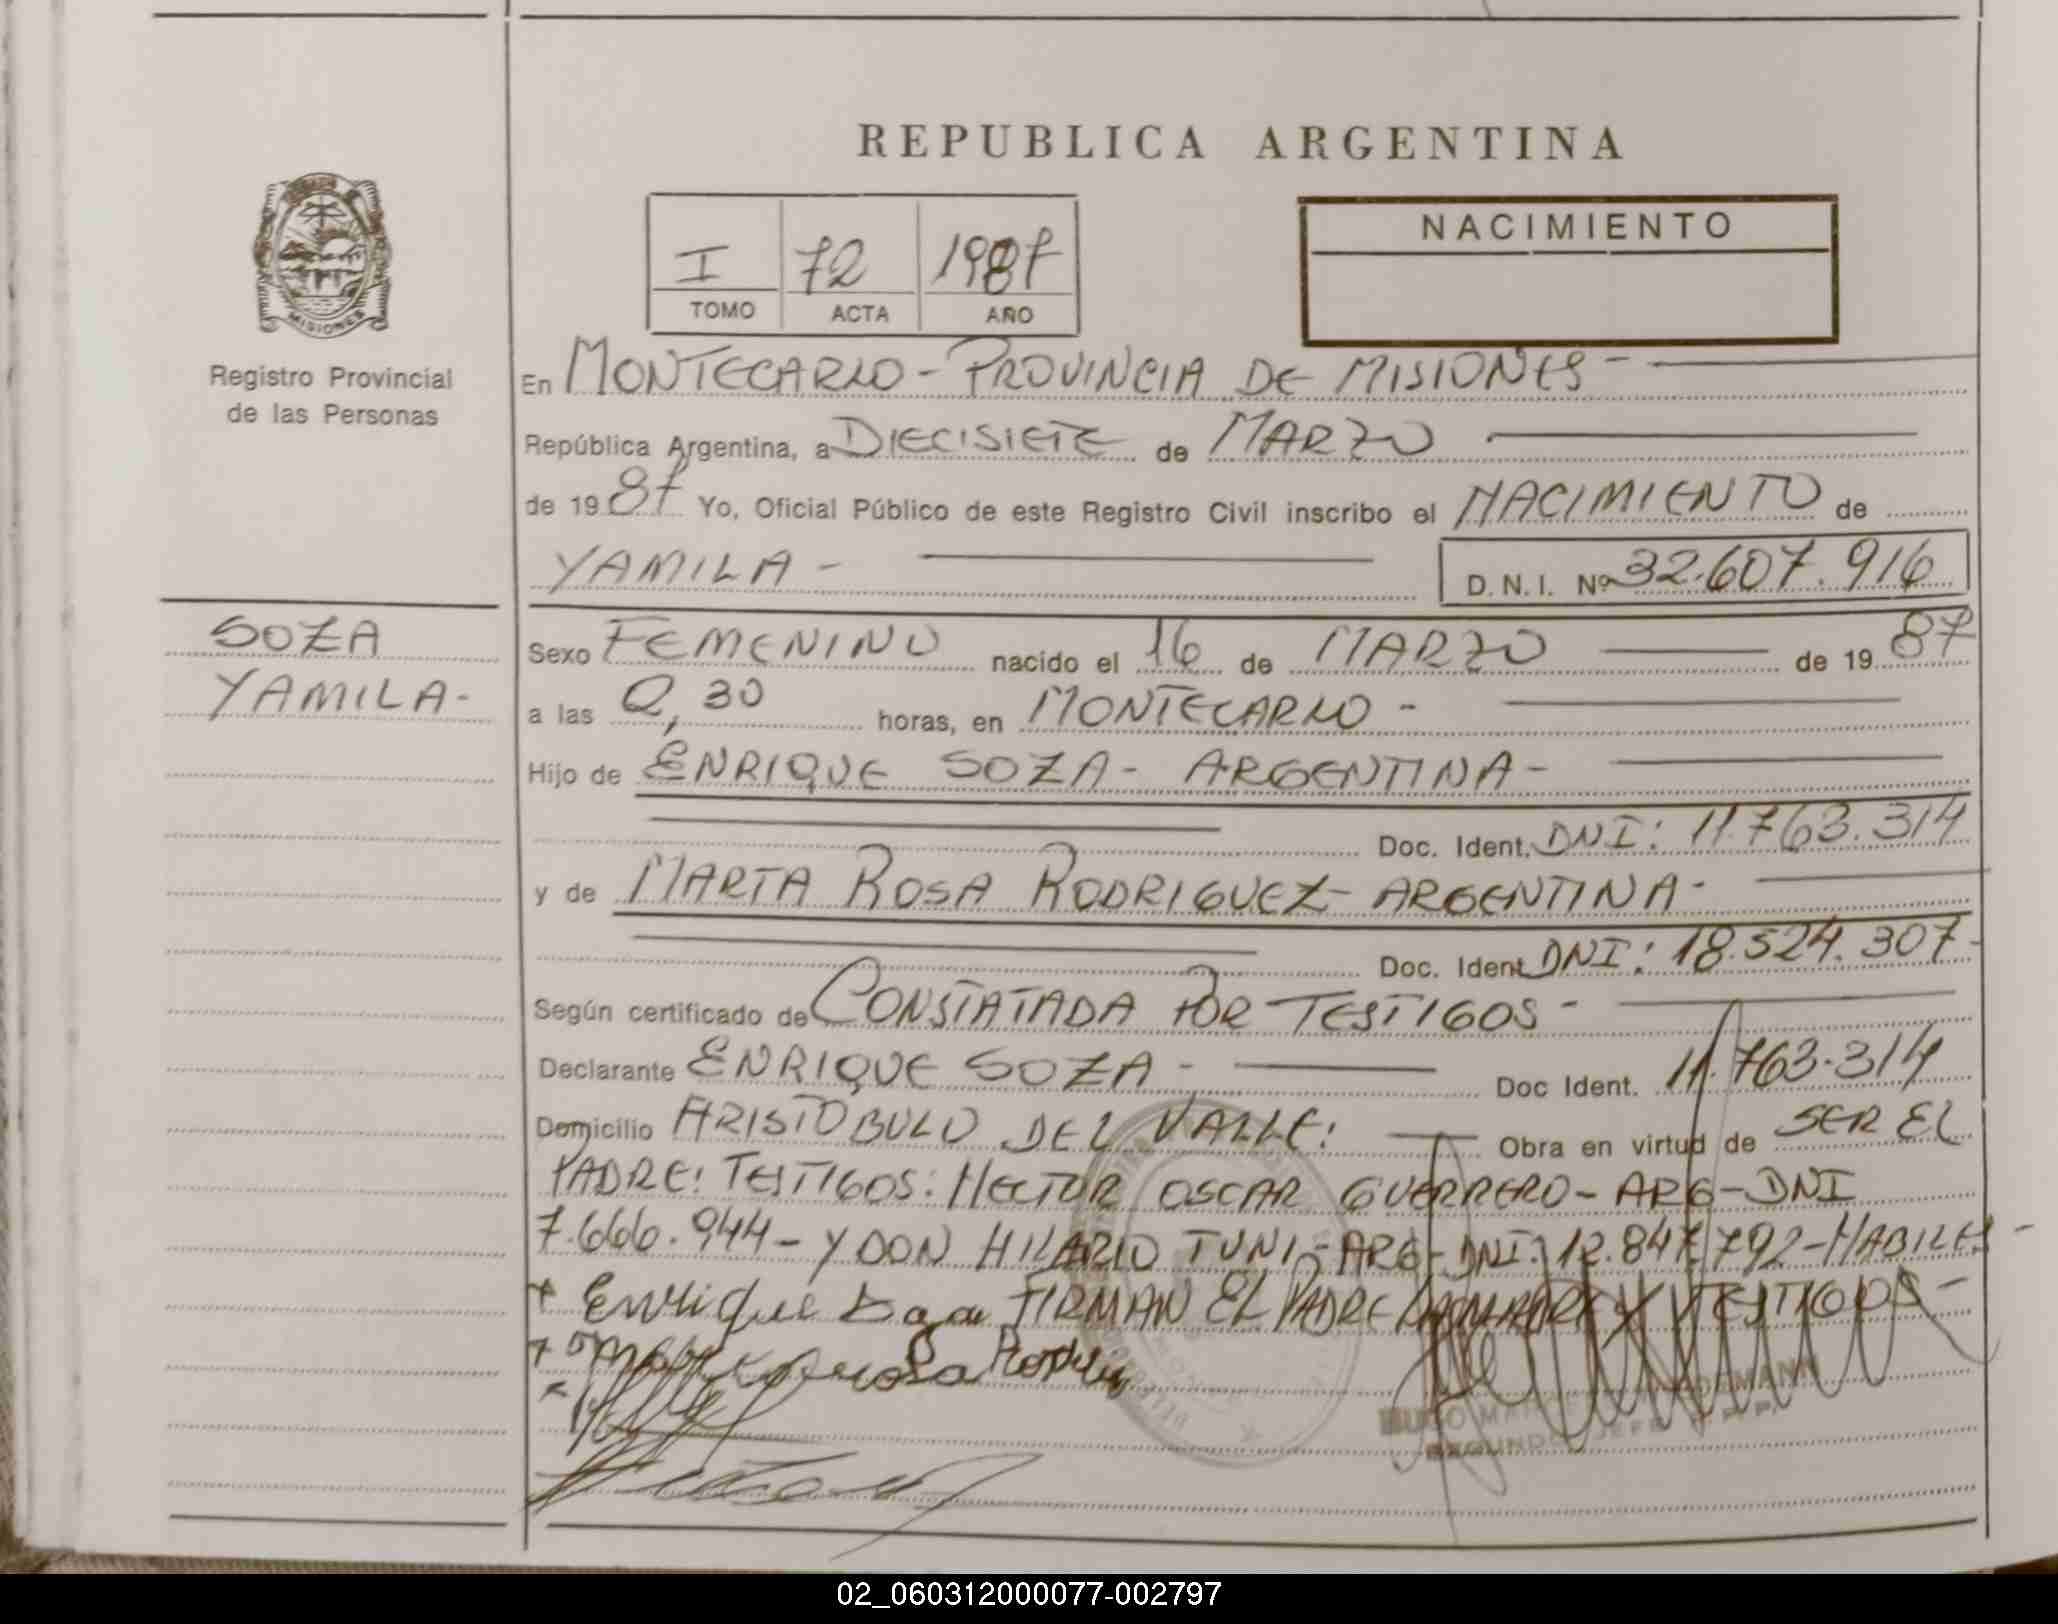 REPUBLICA ARGENTINA
MISIONES
Registro Provincial
de las Personas
I 72 1987
TOMO ACTA AÑO
NACIMIENTO
En MONTECARLO - PROVINCIA DE MISIONES -
República Argentina, a DIECISIETE de MARZO
de 1987 Yo, Oficial Público de este Registro Civil inscribo el NACIMIENTO de
YAMILA - D.N.I. Nº 32.607.916
SOZA
YAMILA -
Sexo FEMENINO nacido el 16 de MARZO de 1987
a las 2,30 horas, en MONTECARLO -
Hijo de ENRIQUE SOZA - ARGENTINA -
Doc. Ident. DNI: 11.763.314
y de MARTA ROSA RODRIGUEZ - ARGENTINA -
Doc. Ident DNI: 18.524.307 -
Según certificado de CONSTATADA POR TESTIGOS -
Declarante ENRIQUE SOZA - Doc Ident. 11.763.314
Domicilio ARISTOBULO DEL VALLE: Obra en virtud de SER EL
PADRE: TESTIGOS: HECTOR OSCAR GUERRERO - ARG - DNI
7.666.944 - Y DON HILARIO TUNI - ARG - DNI: 12.847.792 - HABILES -
Enrique FIRMAN EL PADRE LA MADRE Y TESTIGOS -
rosa
HUGO
SEGUNDO JEFE R.P.P.
02_060312000077-002797